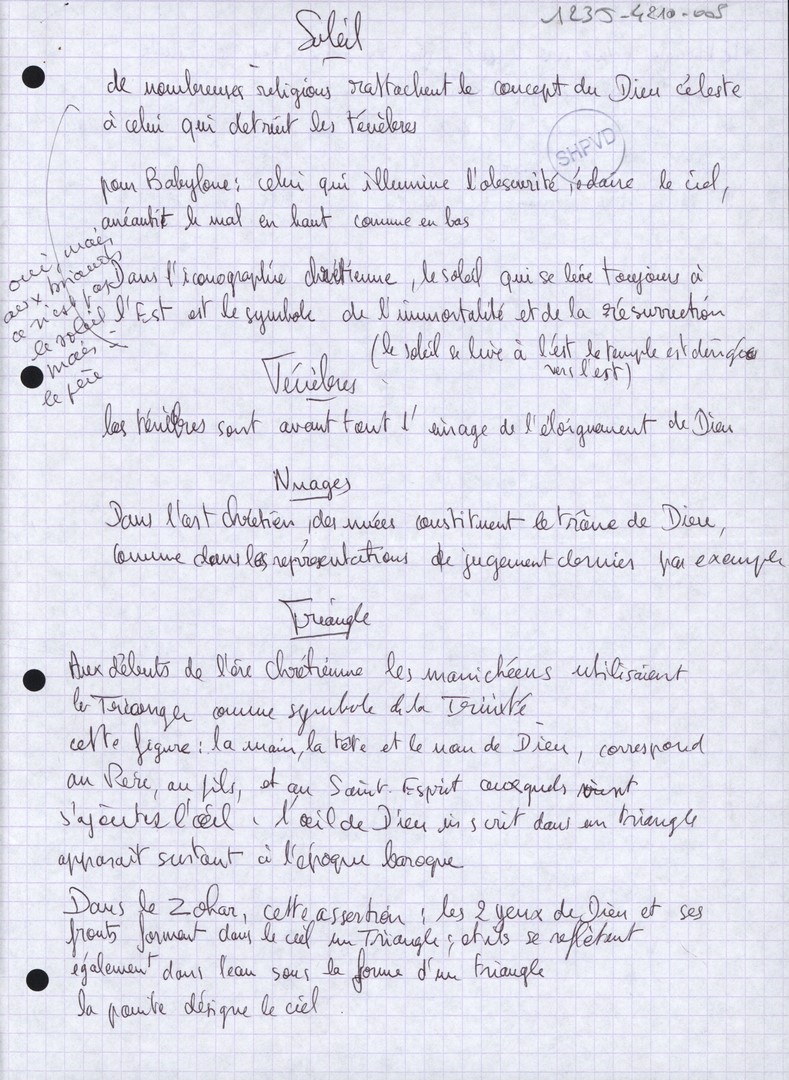 123J-4210-005
Soleil
de nombreuses religions rattachent le concept du Dieu céleste
à celui qui detruit les ténèbres
SHPVD
pour Babylone : celui qui illumine l'obscurité, édaire le ciel,
anéantit le mal en haut comme en bas
oui, mais
aux
ce n'est pas
le soleil
mais
le père
Dans l'iconographie chrétienne, le soleil qui se lève toujours à
l'Est est le symbole de l'immortalité et de la résurrection
(le soleil se lève à l'est le temple est
vers l'est)
Ténèbres
les ténèbres sont avant tout l'image de l'éloignement de Dieu
Nuages
Dans l'art chrétien, des nuées constituent le trône de Dieu,
comme dans les représentations de jugement dernier par exemple
Triangle
Aux débuts de l'ère chrétienne les manichéens utilisaient
le Triangle comme symbole de la Trinité
cette figure : la main, la tête et le nom de Dieu, correspond
au Père, au fils, et au Saint-Esprit auxquels vient
s'ajouter l'œil. l'œil de Dieu inscrit dans un triangle
apparaît surtout à l'époque baroque
Dans le Zohar, cette assertion : les 2 yeux de Dieu et ses
fronts forment dans le ciel un Triangle ; et ils se reflètent
également dans l'eau sous la forme d'un triangle
la pointe désigne le ciel.